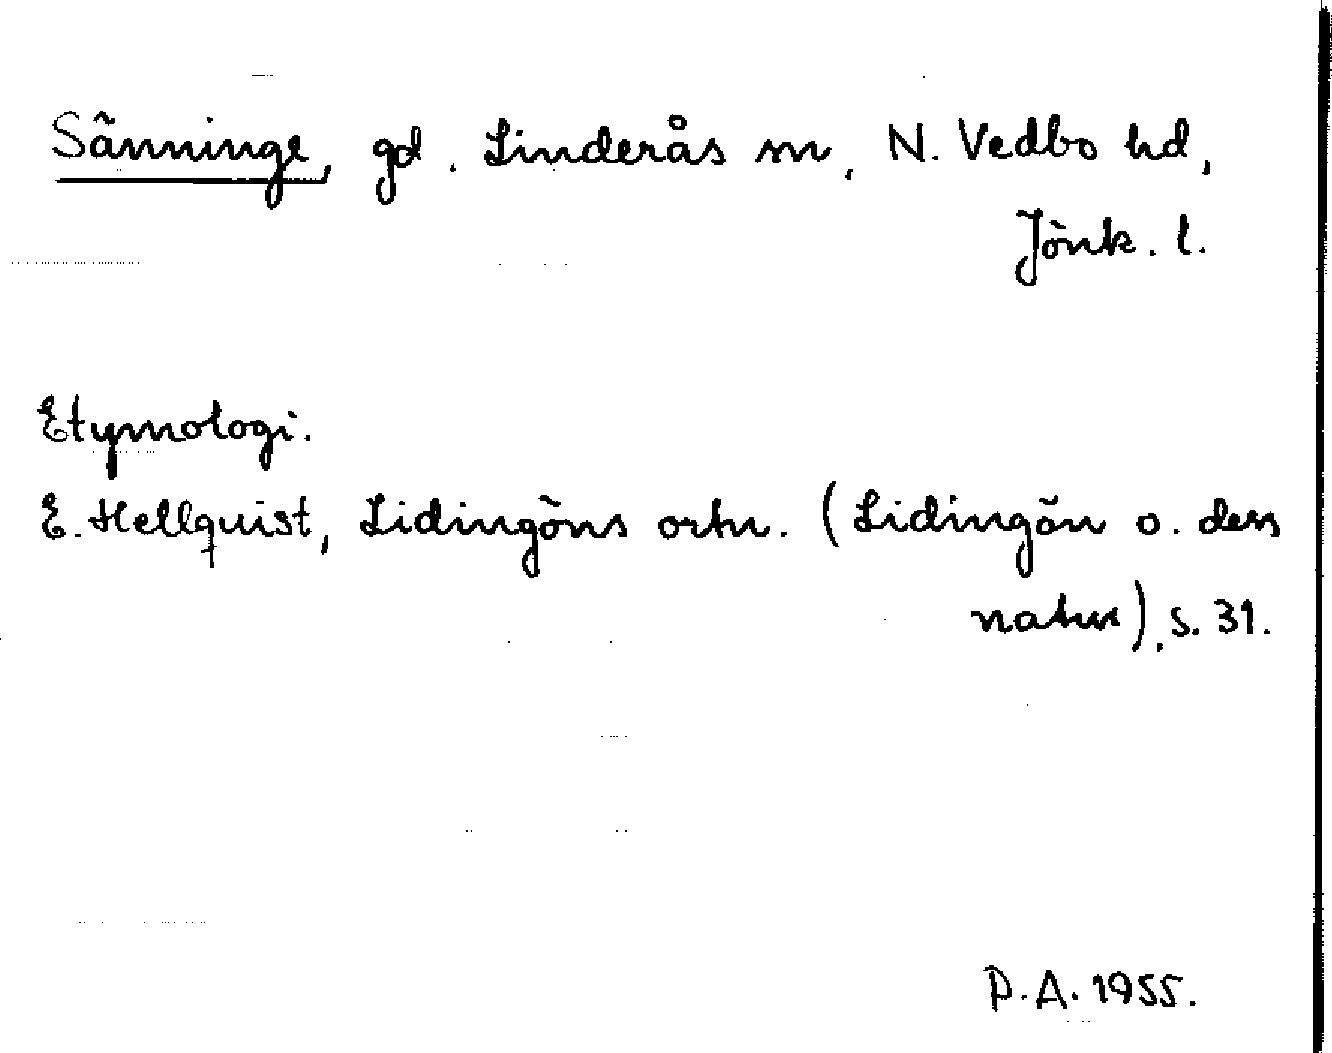 Sänninge, gd. Linderås sn, N. Vedbo hd,
Jönk. l.
Etymologi.
E. Hellquist, Lidingöns ortn. (Lidingön o. dess
natur), s. 31.
P.A. 1955.